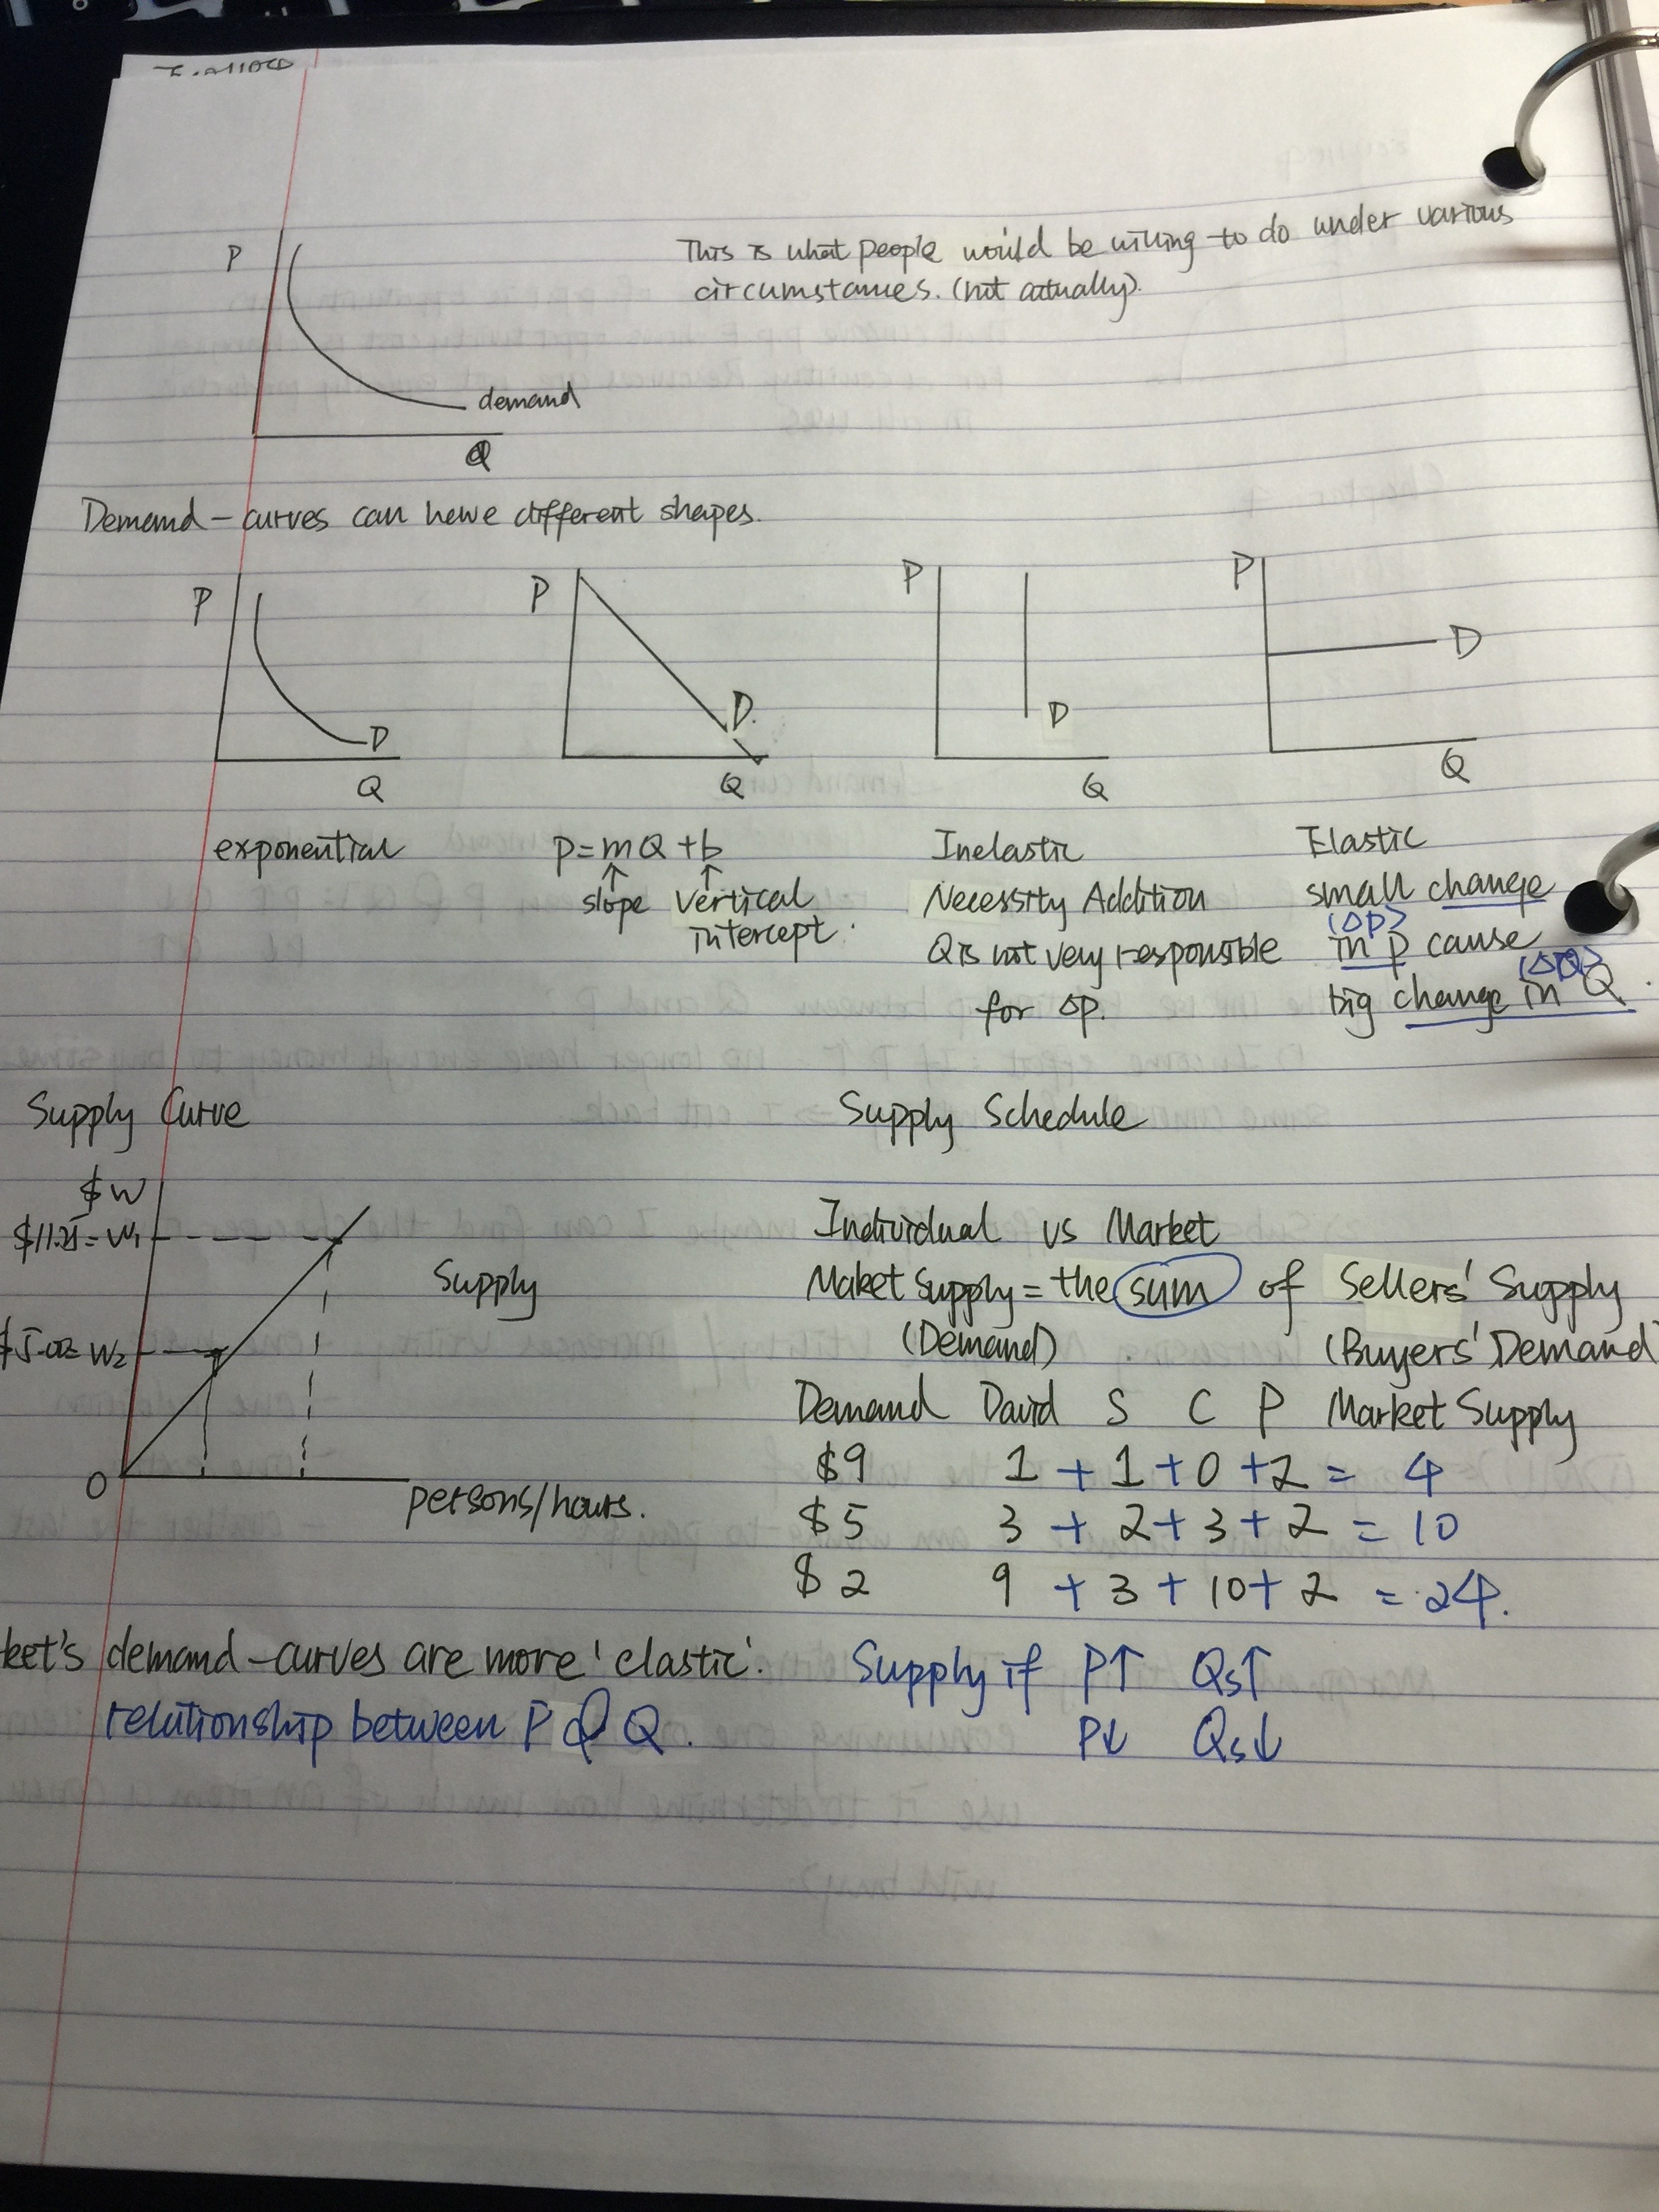 This is what people would be willing to do under various
circumstances. (not actually).
P
demand
Q
Demand-curves can have different shapes.
P P P P
D D. D D
Q Q Q Q
exponential P=mQ+b Inelastic Elastic
slope vertical Necessity Addition small change
intercept. Q is not very responsible (ΔP)
in P cause
for ΔP. (ΔQ)
big change in Q.
Supply Curve Supply Schedule
$W
= W1 Individual vs Market
Supply Maket Supply = the sum of Sellers' Supply
= W2 (Demand) (Buyers' Demand)
Demand David S C P Market Supply
0 $9 1 + 1 + 0 + 2 = 4
persons/hours. $5 3 + 2 + 3 + 2 = 10
$2 9 + 3 + 10 + 2 = 24.
ket's demand-curves are more 'elastic'. Supply if P↑ Qs↑
relationship between P & Q. P↓ Qs↓